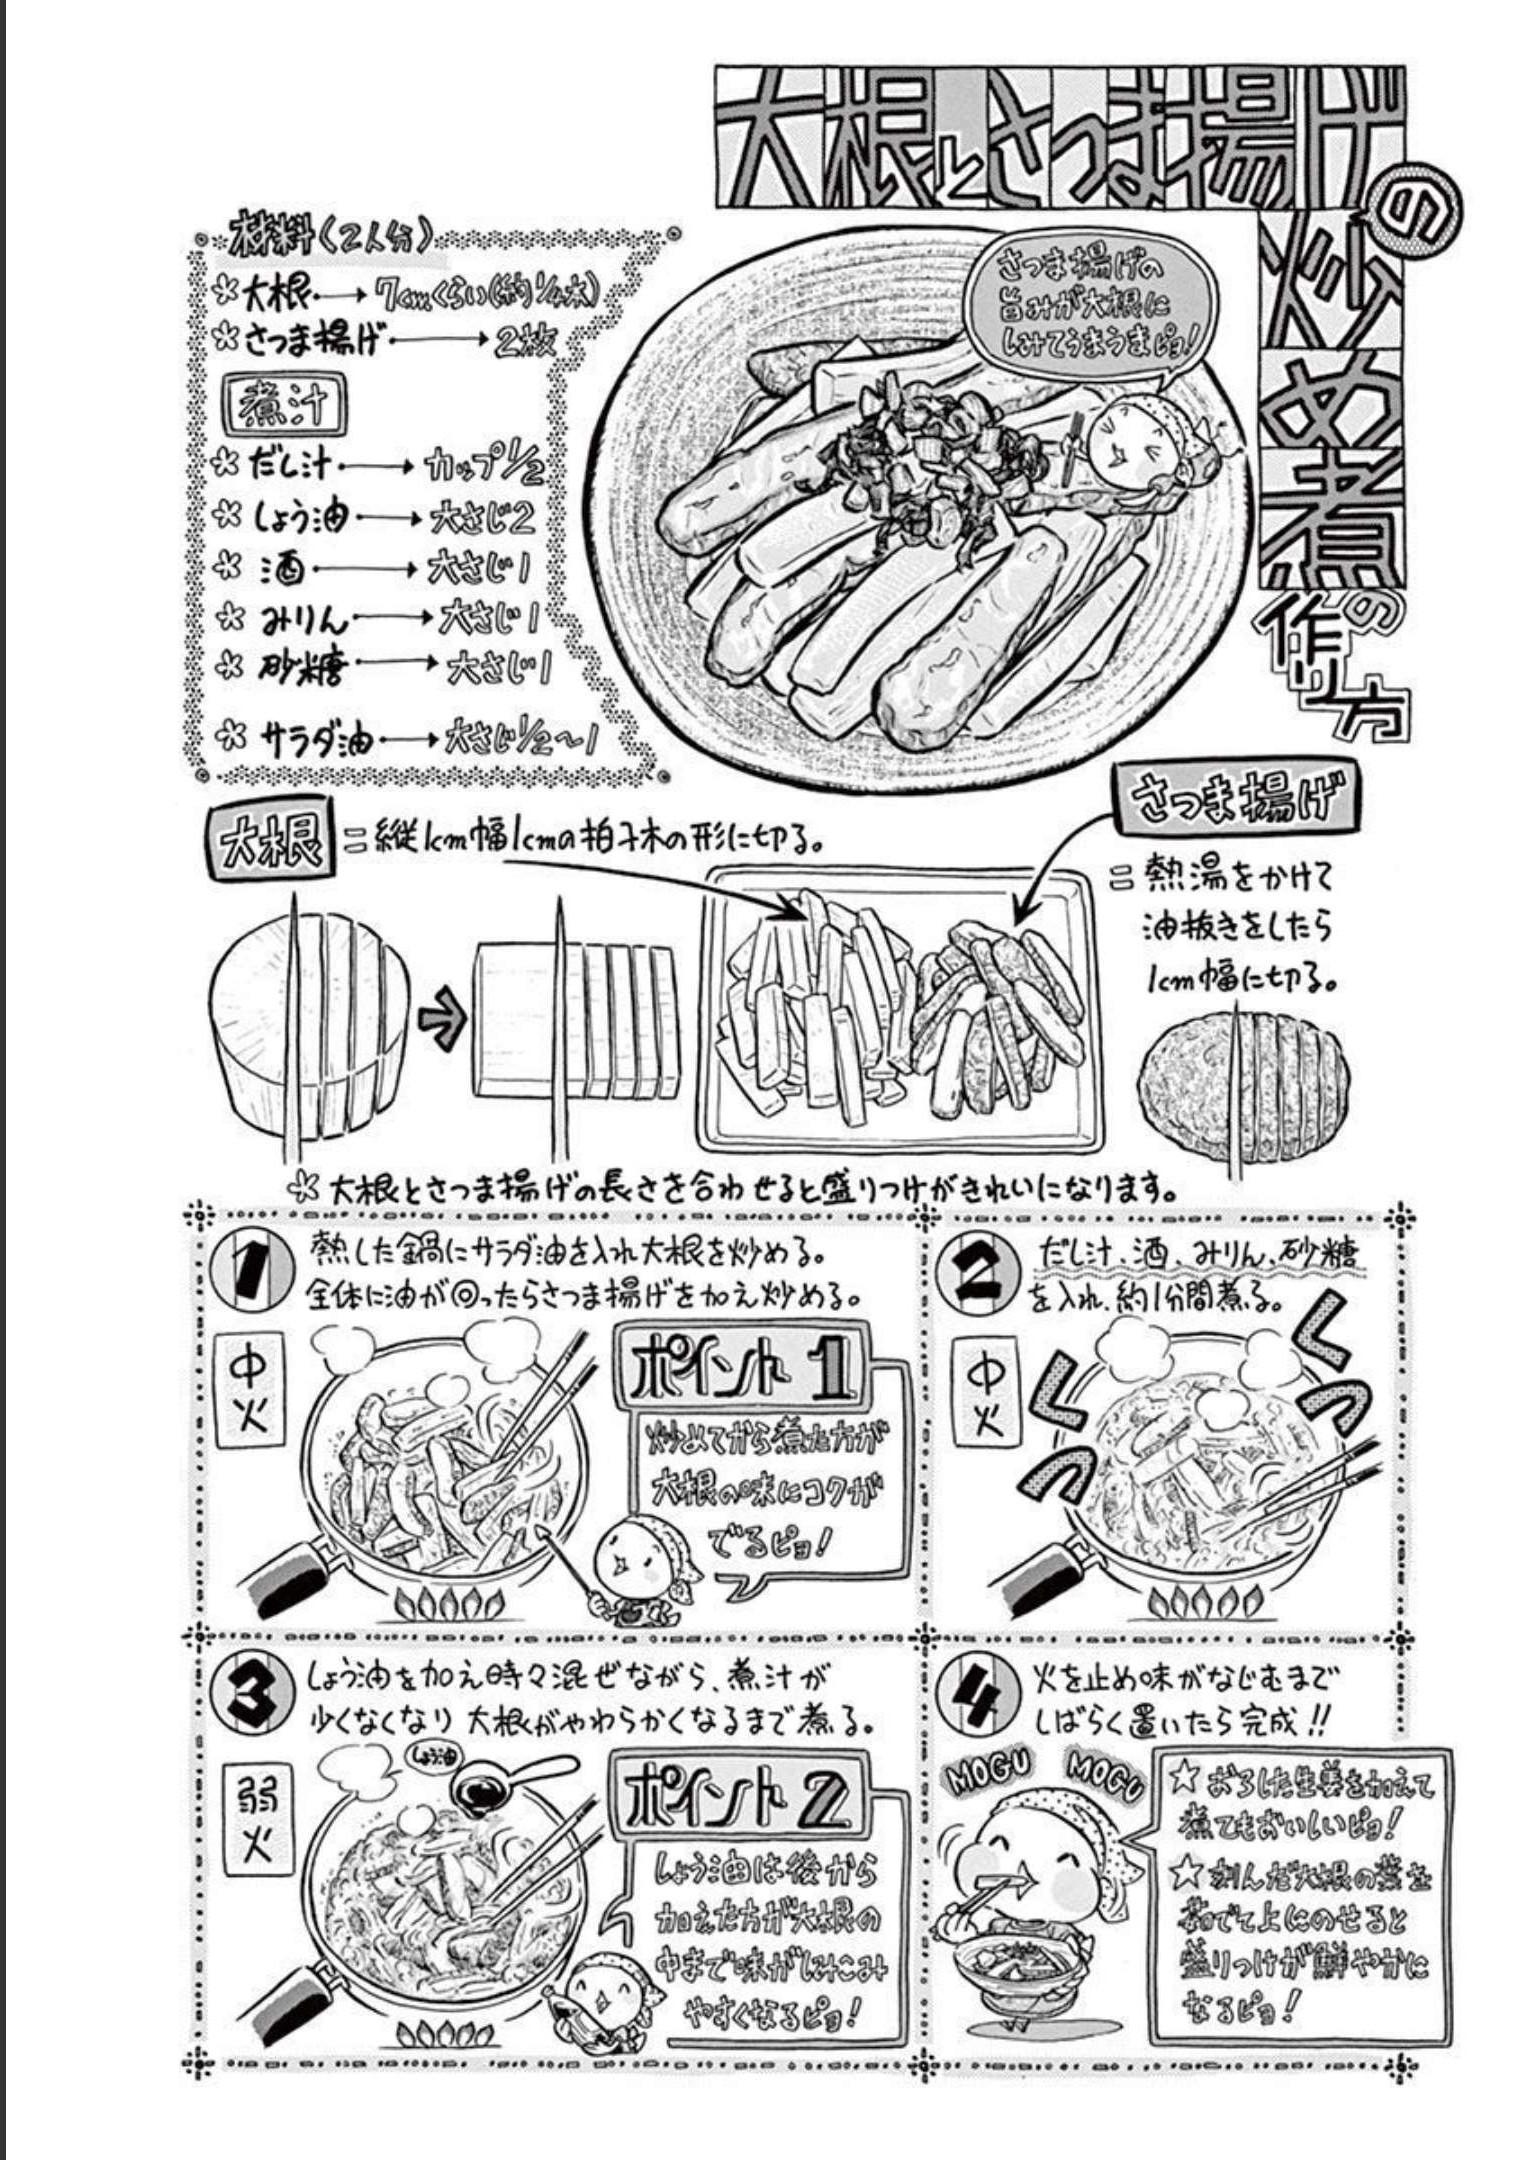 大根とさつま揚げの炒め煮の作り方
さつま揚げの
旨みが大根に
しみてうまうまピョ!
材料(2人分)
大根→7cmくらい(約1/4本)
さつま揚げ→2枚
煮汁
だし汁→カップ1/2
しょう油→大さじ2
酒→大さじ1
みりん→大さじ1
砂糖→大さじ1
サラダ油→大さじ1/2〜1
大根=縦1cm幅1cmの拍子木の形に切る。
さつま揚げ
=熱湯をかけて
油抜きをしたら
1cm幅に切る。
※大根とさつま揚げの長さを合わせると盛りつけがきれいになります。
1 熱した鍋にサラダ油を入れ大根を炒める。
全体に油が回ったらさつま揚げを加え炒める。
中火
ポイント1
炒めてから煮た方が
大根の味にコクが
でるピョ!
2 だし汁、酒、みりん、砂糖
を入れ、約1分間煮る。
中火
くつ
くつ
3 しょう油を加え時々混ぜながら、煮汁が
少くなくなり 大根がやわらかくなるまで煮る。
弱火
しょう油
ポイント2
しょう油は後から
加えた方が大根の
中まで味がしみこみ
やすくなるピョ!
4 火を止め味がなじむまで
しばらく置いたら完成!!
MOGU MOGU
☆おろした生姜を加えて
煮てもおいしいピョ!
☆刻んだ大根の葉を
茹でて上にのせると
盛りつけが鮮やかに
なるピョ!